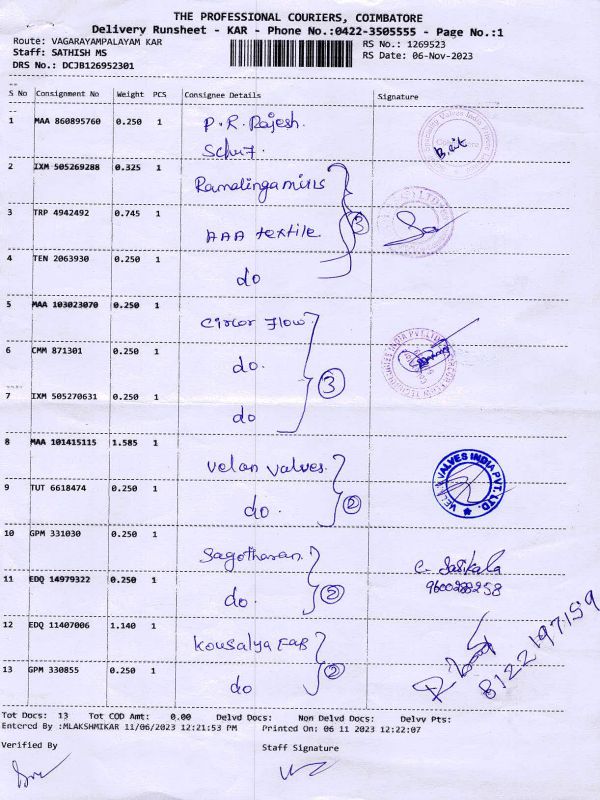 THE PROFESSIONAL COURIERS, COIMBATORE
Delivery Runsheet - KAR - Phone No.:0422-3505555 - Page No.:1
Route: VAGARAYAMPALAYAM KAR
RS No.: 1269523
Staff: SATHISH MS
RS Date: 06-Nov-2023
DRS No.: DCJB126952301
S No Consignment No Weight PCS Consignee Details Signature
1 MAA 860895760 0.250 1 P.R. Rajesh.
2 IXM 505269288 0.325 1 Ramalinga mills
3 TRP 4942492 0.745 1 AAA textile. 3
4 TEN 2063930 0.250 1 do
5 MAA 103023070 0.250 1 Circor Flow
6 CMM 871301 0.250 1 do.
3
7 IXM 505270631 0.250 1 do
8 MAA 101415115 1.585 1 Velan valves. VELAN VALVES INDIA PVT. LTD.
9 TUT 6618474 0.250 1 do. 2
10 GPM 331030 0.250 1 Sagotharan C. Sasikala
9600288258
11 EDQ 14979322 0.250 1 do. 2
12 EDQ 11407006 1.140 1 Kousalya Fab
8122197159
13 GPM 330855 0.250 1 do 2
Tot Docs: 13 Tot COD Amt: 0.00 Delvd Docs: Non Delvd Docs: Delvy Pts:
Entered By :MLAKSHMIKAR 11/06/2023 12:21:53 PM Printed On: 06 11 2023 12:22:07
Verified By Staff Signature